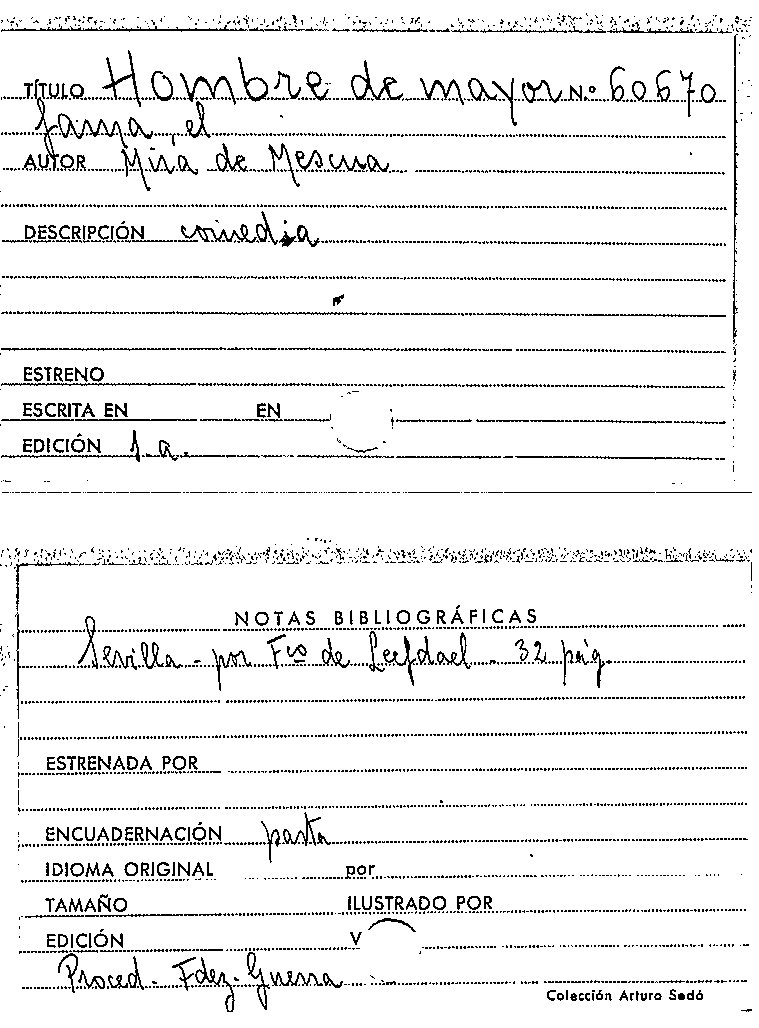 TÍTULO Hombre de mayor N.º 60670
fama, el
AUTOR Mira de Mescua
DESCRIPCIÓN comedia
ESTRENO
ESCRITA EN EN
EDICIÓN s.a.
NOTAS BIBLIOGRÁFICAS
Sevilla - por Fco de Leefdael - 32 pág.
ESTRENADA POR
ENCUADERNACIÓN pasta
IDIOMA ORIGINAL por
TAMAÑO ILUSTRADO POR
EDICIÓN V
Proced. Fdez-Guerra
Colección Arturo Sedó